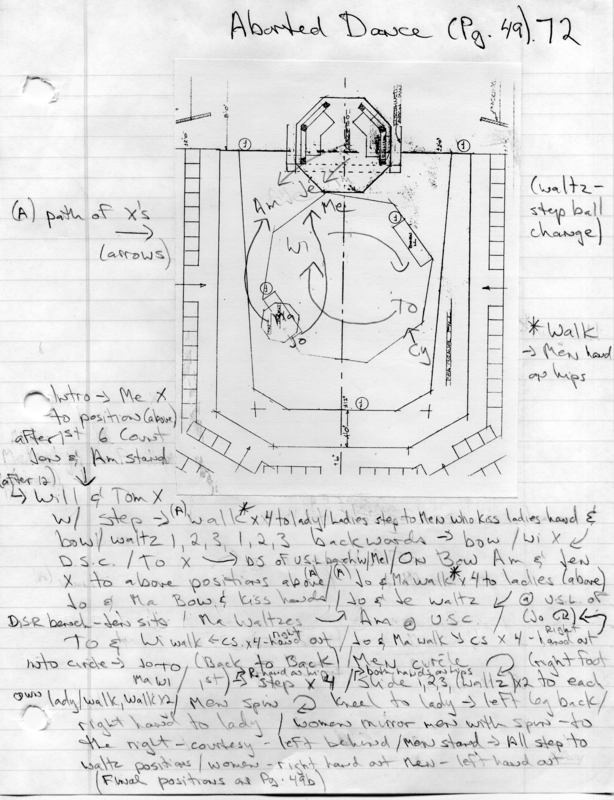 Aborted Dance (Pg. 49). 72
(A) path of X's
→
(arrows)
(waltz-
step ball
change)
* Walk
→ Men hand
on hips
Am
Je
Me
Wi
Ma
Jo
To
Cy
1
1
1
1
Intro → Me X
to position (above)
after 1st 6 count
Jen & Am stand
(after 12)
↳ Will & Tom X
w/ step → (A) walk* x 4 to lady/Ladies step to Men who kiss ladies hand &
bow/waltz 1, 2, 3, 1, 2, 3 backwards → bow/Wi X
D.S.C. / To X → DS of USL bench w/Me/ On Bow Am & Jen
X to above positions above/(A) Jo & Ma walk* x 4 to ladies (above)
Jo & Ma Bow & kiss hands/ Jo & Je waltz ↙ @ USL of
D.S.R bench - Jen sits / Ma waltzes → Am @ USC / (Jo
To & Wi walk ← CS x 4 - right hand out / Jo & Ma walk CS x 4 - Right hand out
into circle → Jo To / (Back to Back / Men circle (right foot
Ma Wi 1st) step x 4 / both hands on hips Slide 1, 2, 3, (waltz) x 2 to each
own lady/walk, walk 12 / Men spin Kneel to lady → left leg back/
right hand to lady / women mirror men with spin - to
the right - courtesy - left behind / Men stand → All step to
waltz positions / women - right hand out men - left hand out
(Final positions as Pg. 49b)